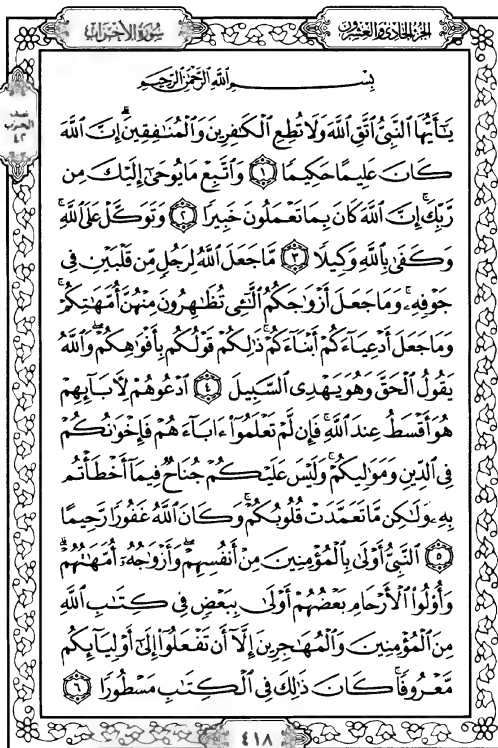 الجزء الحادي والعشرون
سورة الأحزاب
نصف
الحزب
٤٢
بِسْمِ اللَّهِ الرَّحْمَٰنِ الرَّحِيمِ
يَٰٓأَيُّهَا ٱلنَّبِيُّ ٱتَّقِ ٱللَّهَ وَلَا تُطِعِ ٱلْكَٰفِرِينَ وَٱلْمُنَٰفِقِينَۗ إِنَّ ٱللَّهَ
كَانَ عَلِيمًا حَكِيمًا ١ وَٱتَّبِعْ مَا يُوحَىٰٓ إِلَيْكَ مِن
رَّبِّكَۚ إِنَّ ٱللَّهَ كَانَ بِمَا تَعْمَلُونَ خَبِيرًا ٢ وَتَوَكَّلْ عَلَى ٱللَّهِۚ
وَكَفَىٰ بِٱللَّهِ وَكِيلًا ٣ مَّا جَعَلَ ٱللَّهُ لِرَجُلٍ مِّن قَلْبَيْنِ فِى
جَوْفِهِۦۚ وَمَا جَعَلَ أَزْوَٰجَكُمُ ٱلَّٰٓـِٔى تُظَٰهِرُونَ مِنْهُنَّ أُمَّهَٰتِكُمْۚ
وَمَا جَعَلَ أَدْعِيَآءَكُمْ أَبْنَآءَكُمْۚ ذَٰلِكُمْ قَوْلُكُم بِأَفْوَٰهِكُمْۖ وَٱللَّهُ
يَقُولُ ٱلْحَقَّ وَهُوَ يَهْدِى ٱلسَّبِيلَ ٤ ٱدْعُوهُمْ لِءَابَآئِهِمْ
هُوَ أَقْسَطُ عِندَ ٱللَّهِۚ فَإِن لَّمْ تَعْلَمُوٓا۟ ءَابَآءَهُمْ فَإِخْوَٰنُكُمْ
فِى ٱلدِّينِ وَمَوَٰلِيكُمْۚ وَلَيْسَ عَلَيْكُمْ جُنَاحٌ فِيمَآ أَخْطَأْتُم
بِهِۦ وَلَٰكِن مَّا تَعَمَّدَتْ قُلُوبُكُمْۚ وَكَانَ ٱللَّهُ غَفُورًا رَّحِيمًا
٥ ٱلنَّبِىُّ أَوْلَىٰ بِٱلْمُؤْمِنِينَ مِنْ أَنفُسِهِمْۖ وَأَزْوَٰجُهُۥٓ أُمَّهَٰتُهُمْۗ
وَأُو۟لُوا۟ ٱلْأَرْحَامِ بَعْضُهُمْ أَوْلَىٰ بِبَعْضٍ فِى كِتَٰبِ ٱللَّهِ
مِنَ ٱلْمُؤْمِنِينَ وَٱلْمُهَٰجِرِينَ إِلَّآ أَن تَفْعَلُوٓا۟ إِلَىٰٓ أَوْلِيَآئِكُم
مَّعْرُوفًاۚ كَانَ ذَٰلِكَ فِى ٱلْكِتَٰبِ مَسْطُورًا ٦
٤١٨